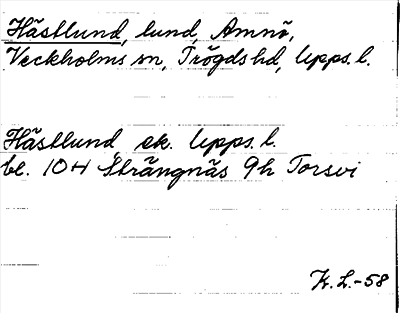 Hästlund, lund, Amnö,
Veckholms sn, Trögds hd, Upps. l.
Hästlund, ek. Upps. l.
bl. 10H Strängnäs 9h Torsvi
K.L.-58